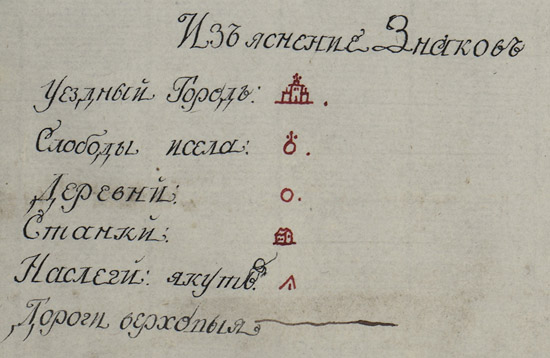 Изъяснение Знаковъ
Уездный Городъ:
Слободы исела:
Деревни:
Станки:
Наслеги: якутъ:
Дороги верховыя